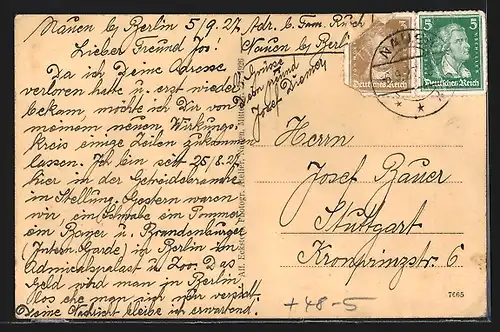 Nauen b/ Berlin 5/9. 27. Adr. b. Fam.
Lieber Freund Jos! Nauen b/ Berlin
Da ich Deine Adresse
verloren habe u. erst wieder
bekam, möchte ich Dir von
meinem neuen Wirkungs-
kreis einige Zeilen zukommen
lassen. Ich bin seit 25/8. 27.
hier in der Getreidebranche
in Stellung. Gestern waren
wir, ein Schwabe ein
ein Bayer u. Brandenburger
(Intern. Garde) in Berlin im
Admiralspalast u. Zoo. Das
Geld wird man in Berlin
los ehe man sich nur versieht.
Deine Nachricht bleibe ich erwartend.
Grüsse
Dein Freund
Josef
3
Deutsches Reich
5 5
Deutsches Reich
NAUEN
Herrn
Josef Bauer
Stuttgart
Kronprinzstr. 6
7665
+48-5